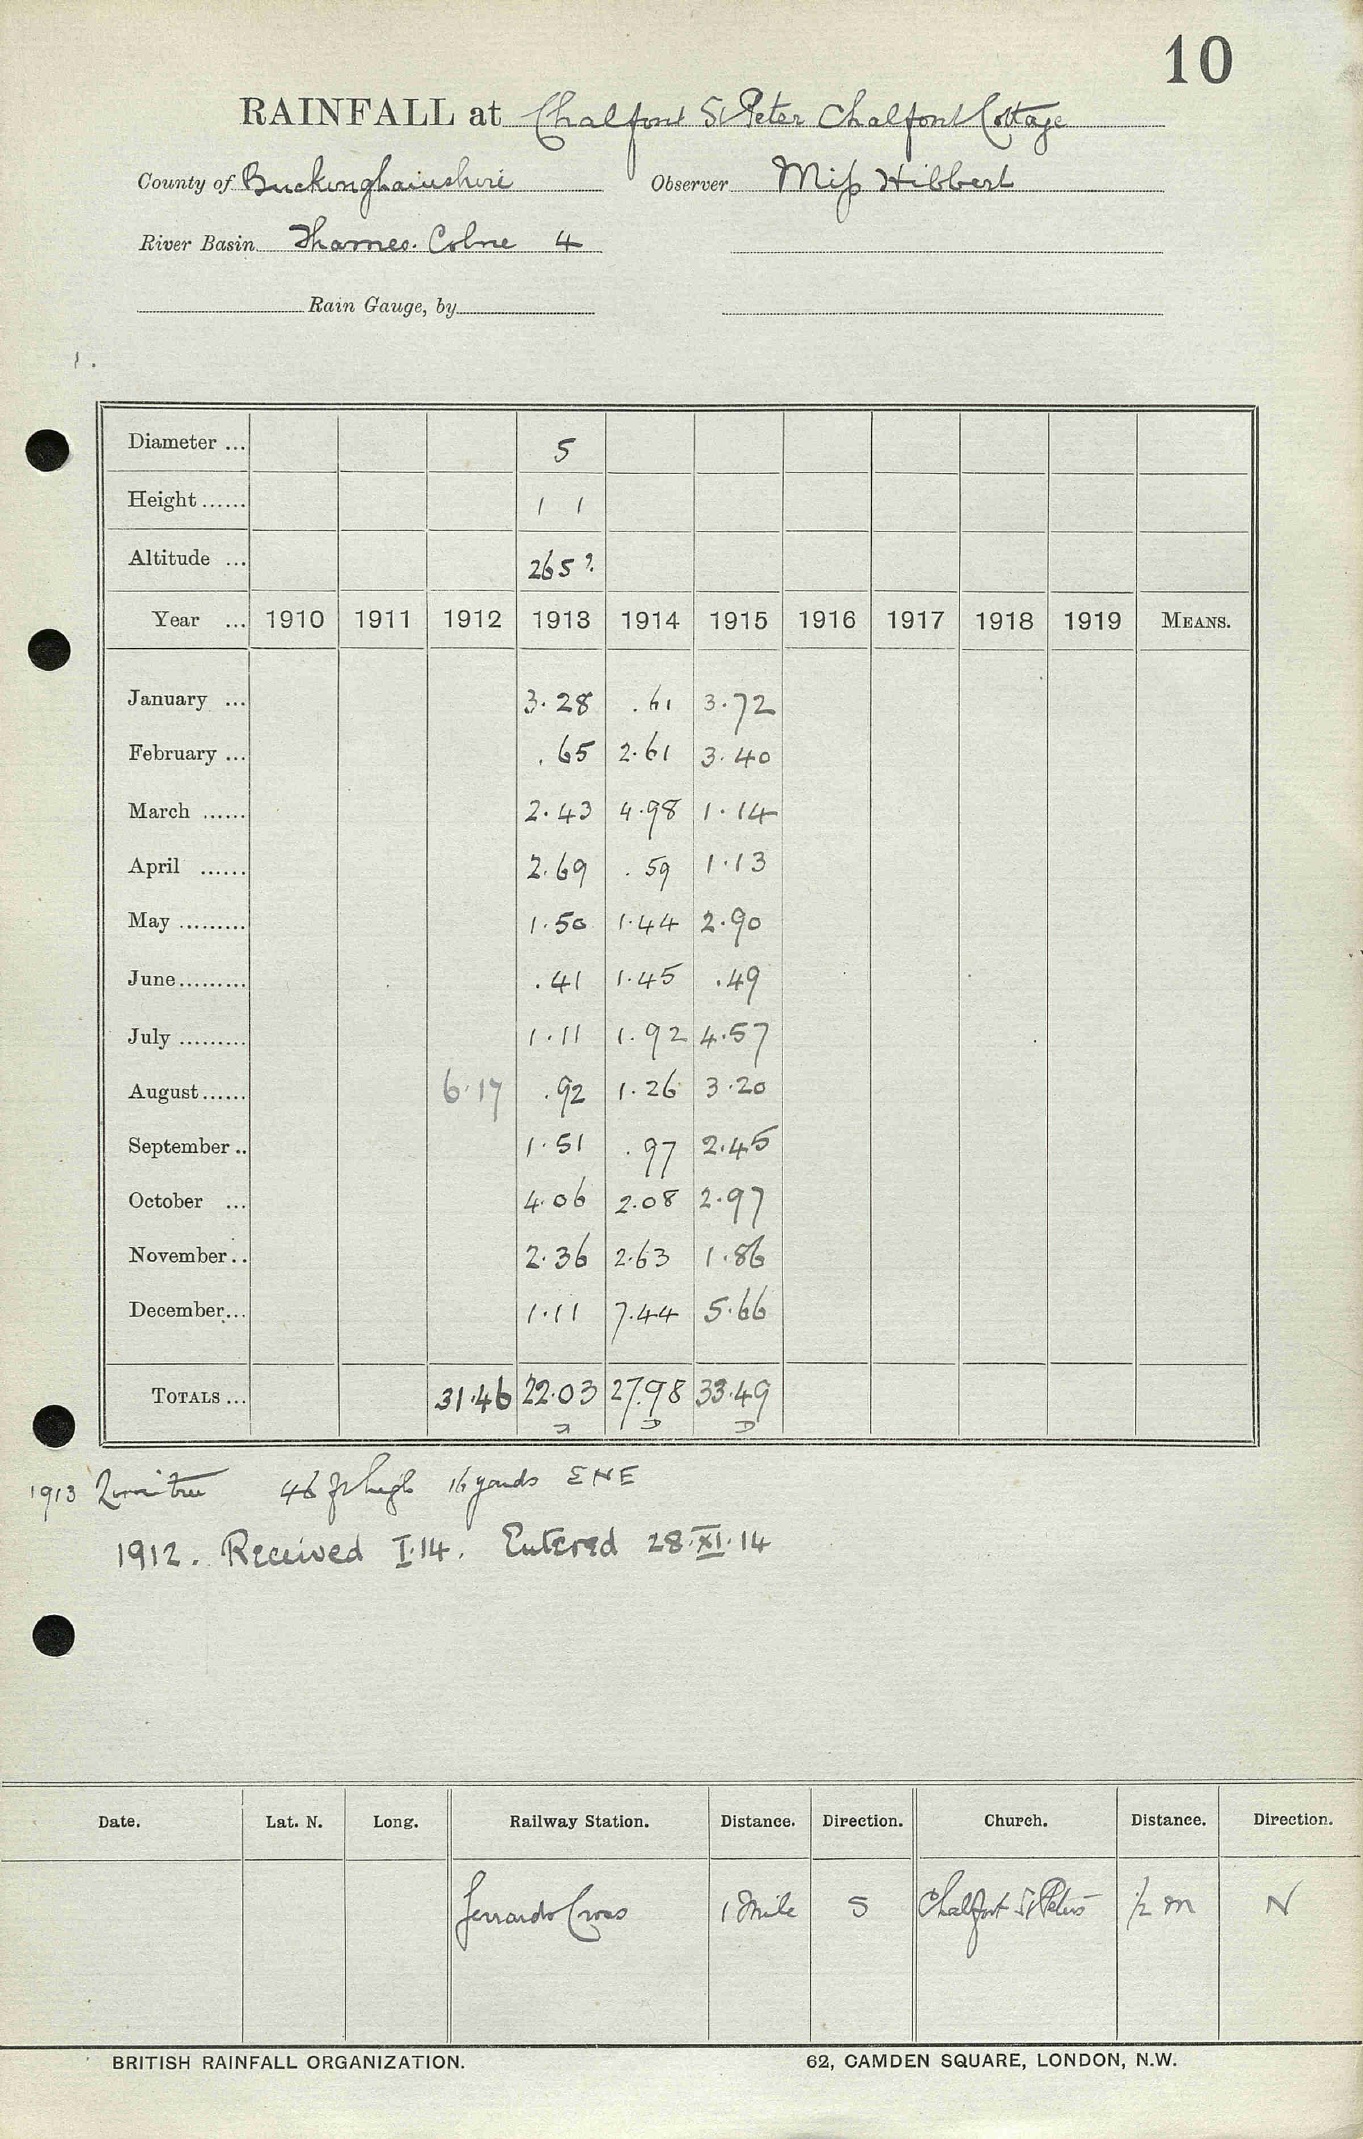 10
RAINFALL at Chalfont St Peter Chalfont Cottage
County of Buckinghamshire Observer Miss Hibbert
River Basin Thames. Colne 4
Rain Gauge, by
Diameter ... 5
Height ...... 1 1
Altitude ... 265?
Year ... 1910 1911 1912 1913 1914 1915 1916 1917 1918 1919 MEANS.
January ... 3.28 .61 3.72
February ... .65 2.61 3.40
March ...... 2.43 4.98 1.14
April ...... 2.69 .59 1.13
May ......... 1.50 1.44 2.90
June ......... .41 1.45 .49
July ......... 1.11 1.92 4.57
August ...... 6.17 .92 1.26 3.20
September .. 1.51 .97 2.45
October ... 4.06 2.08 2.97
November .. 2.36 2.63 1.86
December ... 1.11 7.44 5.66
TOTALS ... 31.46 22.03 27.98 33.49
1913 tree 46 ft high 16 yards ENE
1912. Received I.14. Entered 28.XI.14
Date. Lat. N. Long. Railway Station. Distance. Direction. Church. Distance. Direction.
Gerrards Cross 1 Mile S Chalfont St Peters 1/2 m N
BRITISH RAINFALL ORGANIZATION. 62, CAMDEN SQUARE, LONDON, N.W.